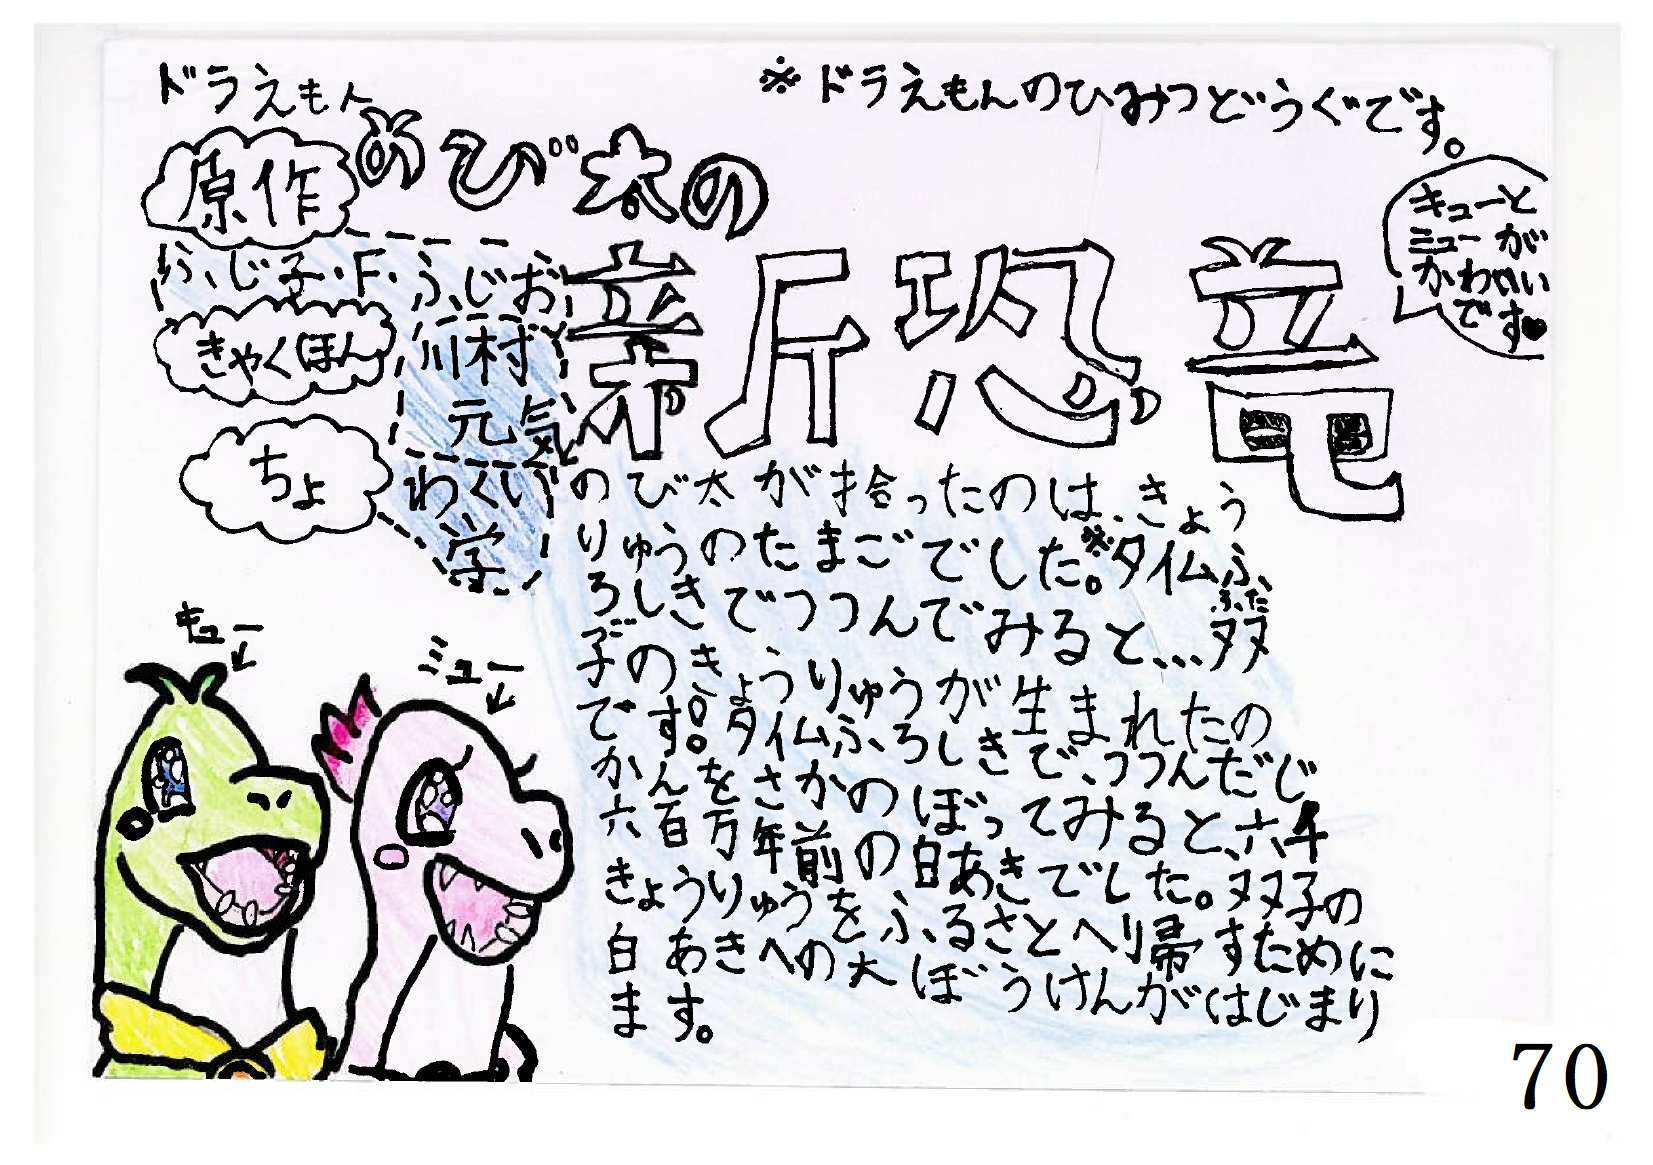 ドラえもん
のび太の
新恐竜
※ドラえもんのひみつどうぐです。
キューと
ミューが
かわいい
です♥
原作
ふじ子・F・ふじお
きゃくほん
川村
元気
ちょ
わくい
学
のび太が拾ったのは、きょう
りゅうのたまごでした。※タイムふ
ろしきでつつんでみると…双
ふた
子のきょうりゅうが生まれたの
ご
です。タイムふろしきで、つつんだじ
かんをさかのぼってみると、六千
六百万年前の白あきでした。双子の
きょうりゅうをふるさとへり帰すために
白あきへの大ぼうけんがはじまり
ます。
キュー
ミュー
70